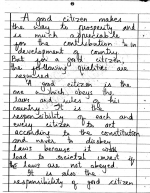 A good citizen makes
the way to prosperity and
is much appreciable
for the contribution to in
development of country
But for a good citizen,
the following qualities are
required
A good citizen is the
one which obeys the
laws and rules of his
country. It is the
responsibility of each and
every citizen to act
according to the constitution
and never to disobey
laws because it will
lead to societal unrest if
the laws are not obeyed
It is also the
responsibility of good citizen